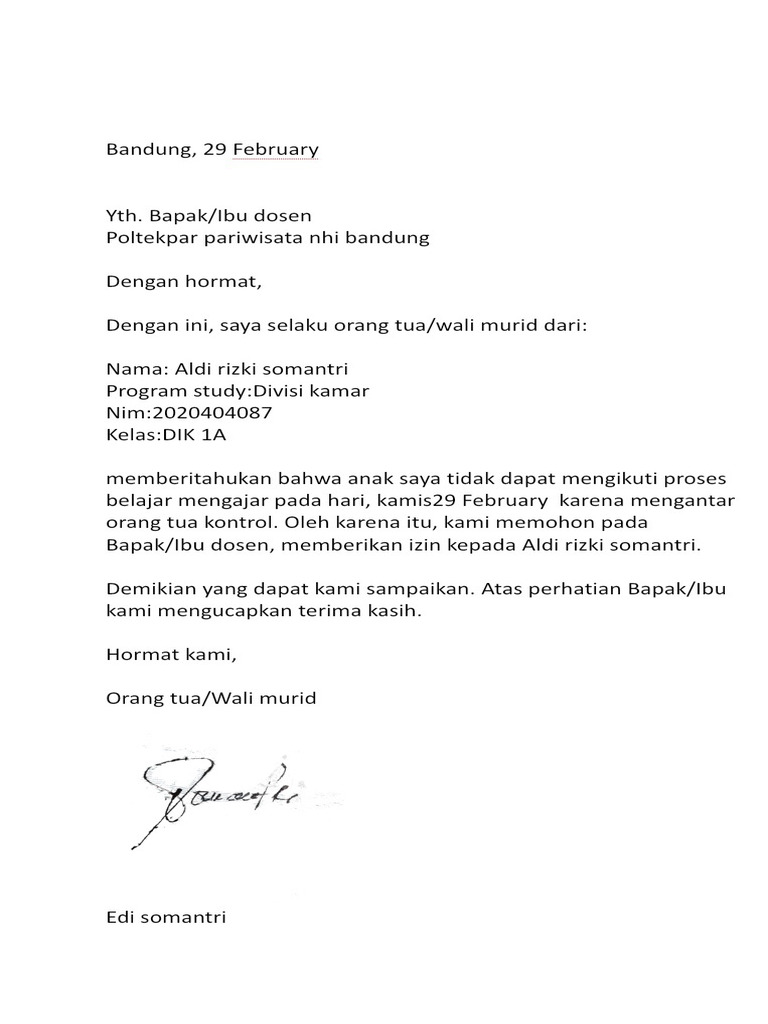 Bandung, 29 February
Yth. Bapak/Ibu dosen
Poltekpar pariwisata nhi bandung
Dengan hormat,
Dengan ini, saya selaku orang tua/wali murid dari:
Nama: Aldi rizki somantri
Program study:Divisi kamar
Nim:2020404087
Kelas:DIK 1A
memberitahukan bahwa anak saya tidak dapat mengikuti proses
belajar mengajar pada hari, kamis29 February  karena mengantar
orang tua kontrol. Oleh karena itu, kami memohon pada
Bapak/Ibu dosen, memberikan izin kepada Aldi rizki somantri.
Demikian yang dapat kami sampaikan. Atas perhatian Bapak/Ibu
kami mengucapkan terima kasih.
Hormat kami,
Orang tua/Wali murid
Edi somantri